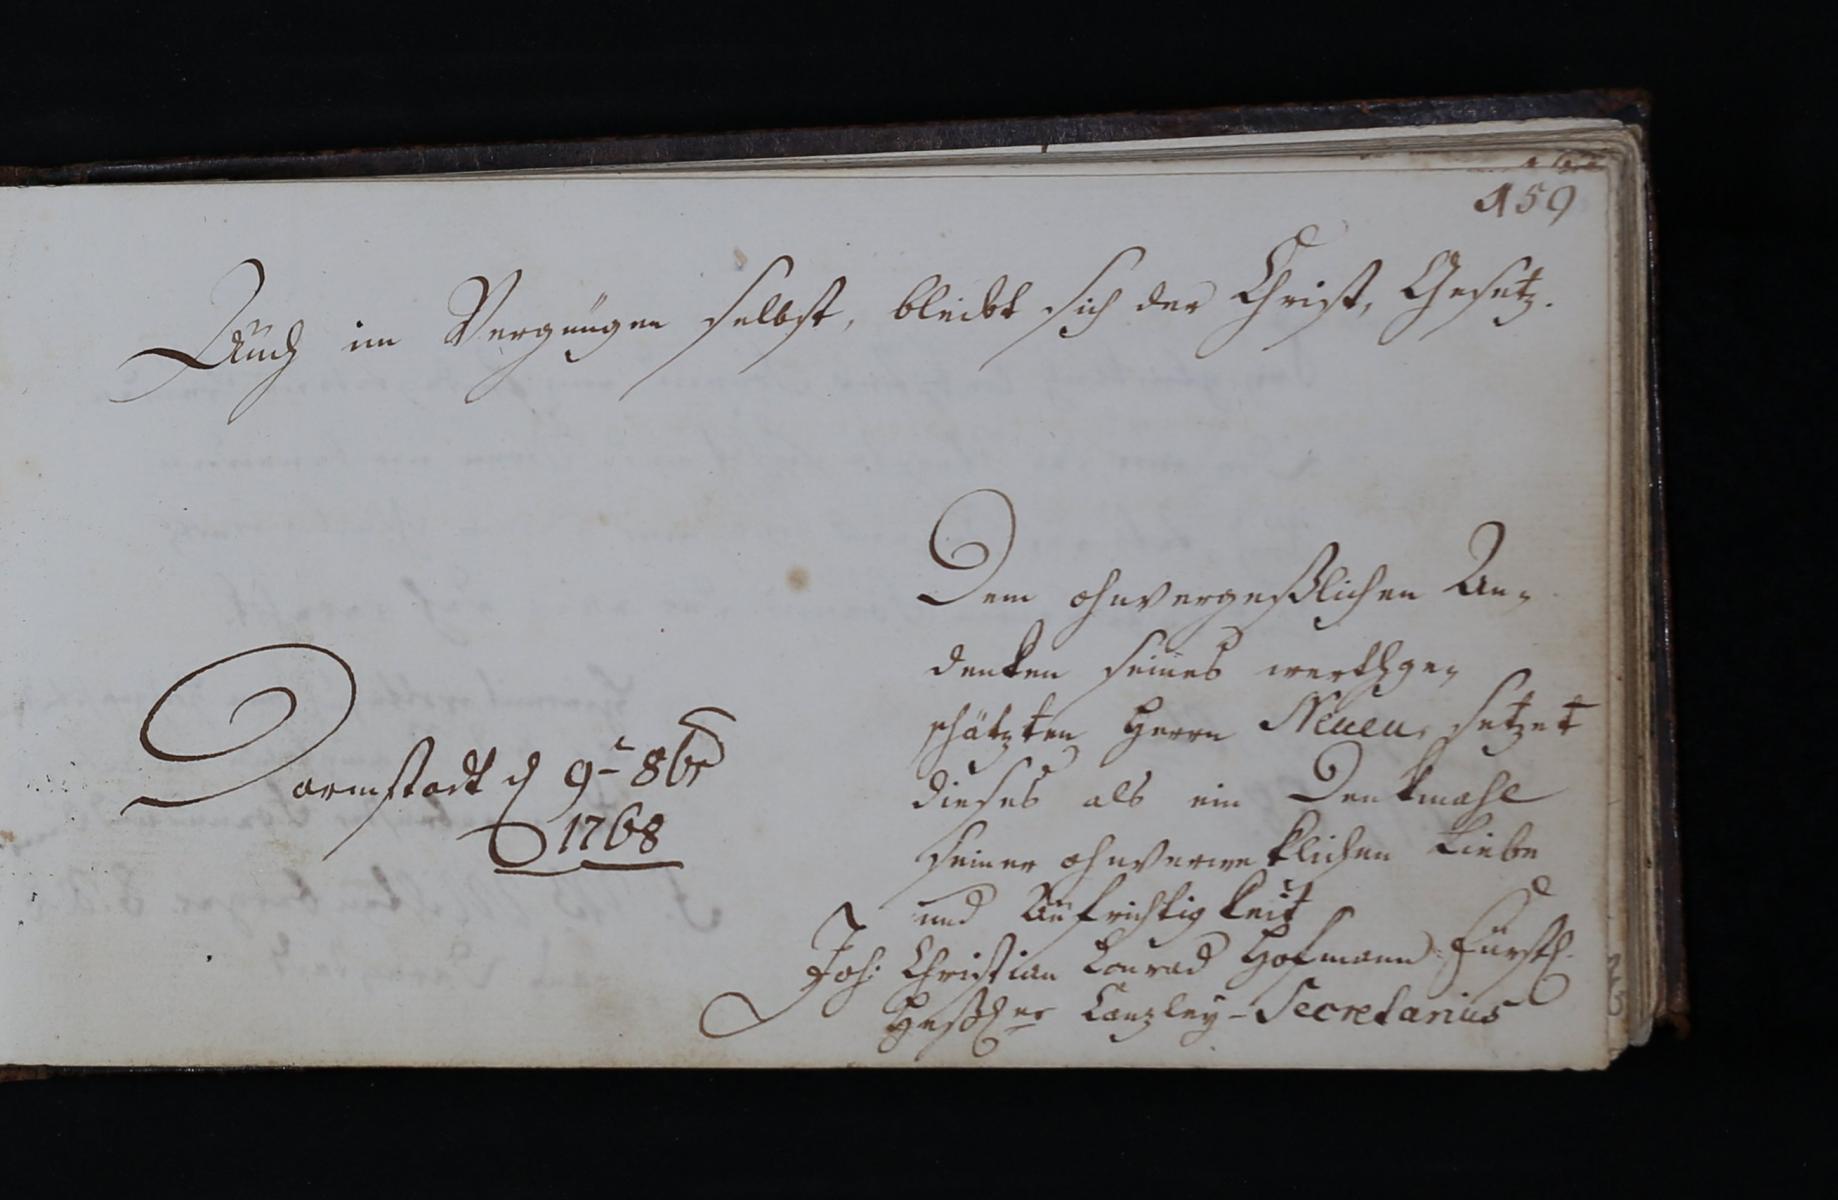 159
Auch im Vergnügen selbst, bleibt sich der Christ, Gesetz.
Dem ohnvergeßlichen An-
denken seines werthge-
schätzten Herrn Neuen, setzet
dieses als ein Denkmahl
seiner ohnverwelklichen Liebe
und Aufrichtigkeit
Joh: Christian Conrad Hofmann Fürstl.
Heßher Canzley-Secretarius
Darmstadt d 9- 8br
1768